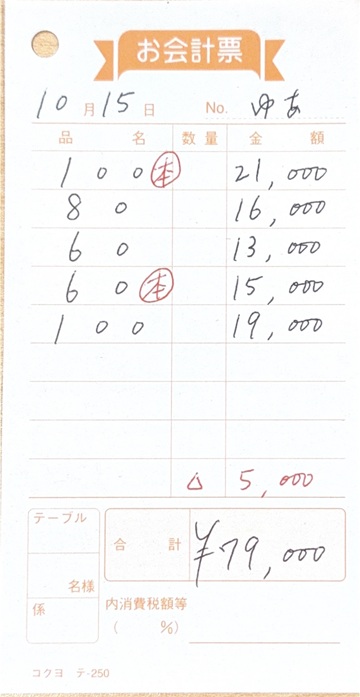 お会計票
10月15日 No. ゆあ
品名 数量 金額
100 本 21,000
80 16,000
60 13,000
60 本 15,000
100 19,000
△ 5,000
テーブル
名様
係
合計 ¥79,000
内消費税額等
( %)
コクヨ テ-250